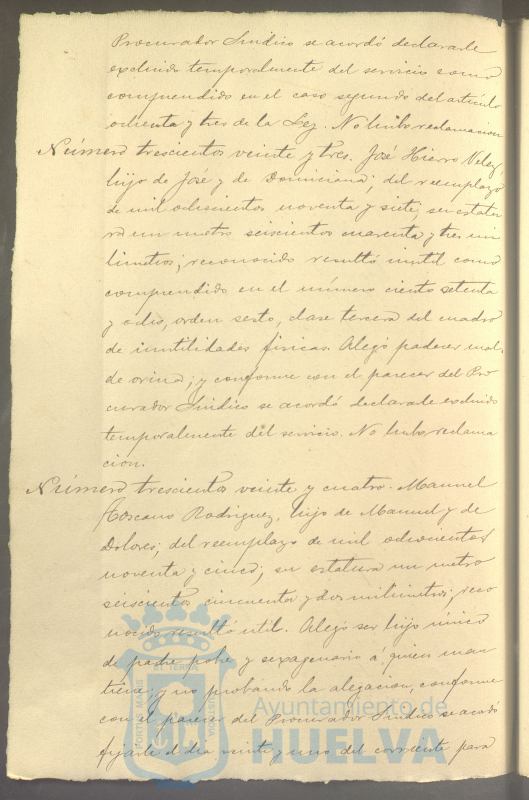 Procurador Sindico se acordó declararle
excluido temporalmente del servicio como
comprendido en el caso segundo del artículo
ochenta y tres de la Ley. No hubo reclamacion
Número trescientos veinte y tres. José Hierro Velez,
hijo de José y de Dominiciana; del reemplazo
de mil ochocientos noventa y siete, su estatu
ra un metro seiscientos cuarenta y tres mi
limetros; reconocido resultó inutil como
comprendido en el número ciento setenta
y ocho, orden sesto, clase tercera del cuadro
de inutilidades físicas. Alegó padecer mal
de orina; y conforme con el parecer del Pro
curador Sindico se acordó declararle excluido
temporalmente del servicio. No hubo reclama
cion.
Número trescientos veinte y cuatro. Manuel
Toscano Rodriguez, hijo de Manuel y de
Dolores; del reemplazo de mil ochocientos
noventa y cinco; su estatura un metro
seiscientos cincuenta y dos milimetros; reco
nocido resultó util. Alegó ser hijo único
de padre pobre y sexagenario á quien man
tiene; y no probando la alegacion, conforme
con el parecer del Procurador Sindico se acordó
fijarle el dia veinte y uno del corriente para
PORTUS MARIS ET TERRAE CUSTODIA
Ayuntamiento de
HUELVA